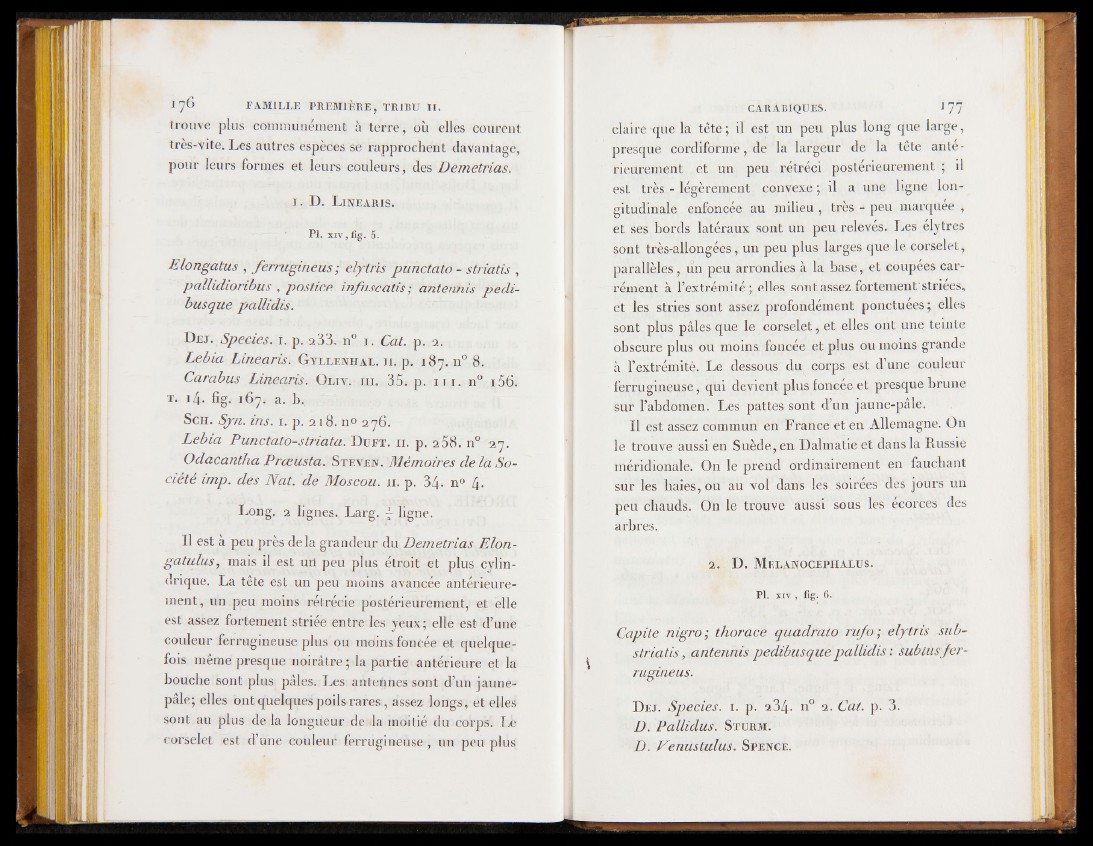 176 FAMILLE PREMIÈRE, TRIBU II.
trouve plus communément à terre, où elles courent
très-vite. Les autres espèces se rapprochent davantage,
pour leurs formes et leurs couleurs, des Demetrias.
1. D. LINEARIS.
Pl. XIV, fig. 5.
Elongatus, ferrugineus; elytris punctato-striatis,
pallidioribus, postice infuscatis; antennis pedi-
busque pallidis.
DEJ. Species. I. p. 233. n° 1. Cat. p. 2.
Lebia Linearis. GYLLENHAL. II. p. 187. n° 8.
Carabus Linearis. OLIV. III. 35. p. 111. n° 156.
T. 14. fig. 167. a. b.
SCH. Syn. ins. I. p. 218. n° 276.
Lebia Punctato-striata. DUFT. II. p. 258. n° 27.
Odacantha Præusta. STEVEN. Mémoires de la So-
ciété imp. des Nat. de Moscou. II. p. 34. n° 4.
Long. 2 lignes. Larg. ligne.
Il est à peu près de la grandeur du Demetrias Elon-
gatulus, mais il est un peu plus étroit et plus cylin-
drique. La tête est un peu moins avancée antérieure-
ment, un peu moins rétrécie postérieurement, et elle
est assez fortement striée entre les yeux; elle est d'une
couleur ferrugineuse plus ou moins foncée et quelque-
fois même presque noirâtre; la partie antérieure et la
bouche sont plus pâles. Les antennes sont d'un jaune-
pâle; elles ont quelques poils rares, assez longs, et elles
sont au plus de la longueur de la moitié du corps. Le
corselet est d'une couleur ferrugineuse, un peu plus
CARABIQUES. 177
claire que la tête; il est un peu plus long que large,
presque cordiforme, de la largeur de la tête anté-
rieurement et un peu rétréci postérieurement; il
est très-légèrement convexe; il a une ligne lon-
gitudinale enfoncée au milieu, très-peu marquée,
et ses bords latéraux sont un peu relevés. Les élytres
sont très-allongées, un peu plus larges que le corselet,
parallèles, un peu arrondies à la base, et coupées car-
rément à l'extrémité; elles sont assez fortement striées,
et les stries sont assez profondément ponctuées; elles
sont plus pâles que le corselet, et elles ont une teinte
obscure plus ou moins foncée et plus ou moins grande
à l'extrémité. Le dessous du corps est d'une couleur
ferrugineuse, qui devient plus foncée et presque brune
sur l'abdomen. Les pattes sont d'un jaune-pâle.
Il est assez commun en France et en Allemagne. On
le trouve aussi en Suède, en Dalmatie et dans la Russie
méridionale. On le prend ordinairement en fauchant
sur les haies, ou au vol dans les soirées des jours un
peu chauds. On le trouve aussi sous les écorces des
arbres.
2. D. MELANOCEPHALUS.
Pl. XIV, fig. 6.
Capite nigro; thorace quadrato rufo; elytris sub-
striatis, antennis pedibusque pallidis: subtus fer-
rugineus.
DEJ. Species. I. p. 234. n° 2. Cat. p. 3.
D. Pallidus. STURM.
D. Venustulus. SPENCE.